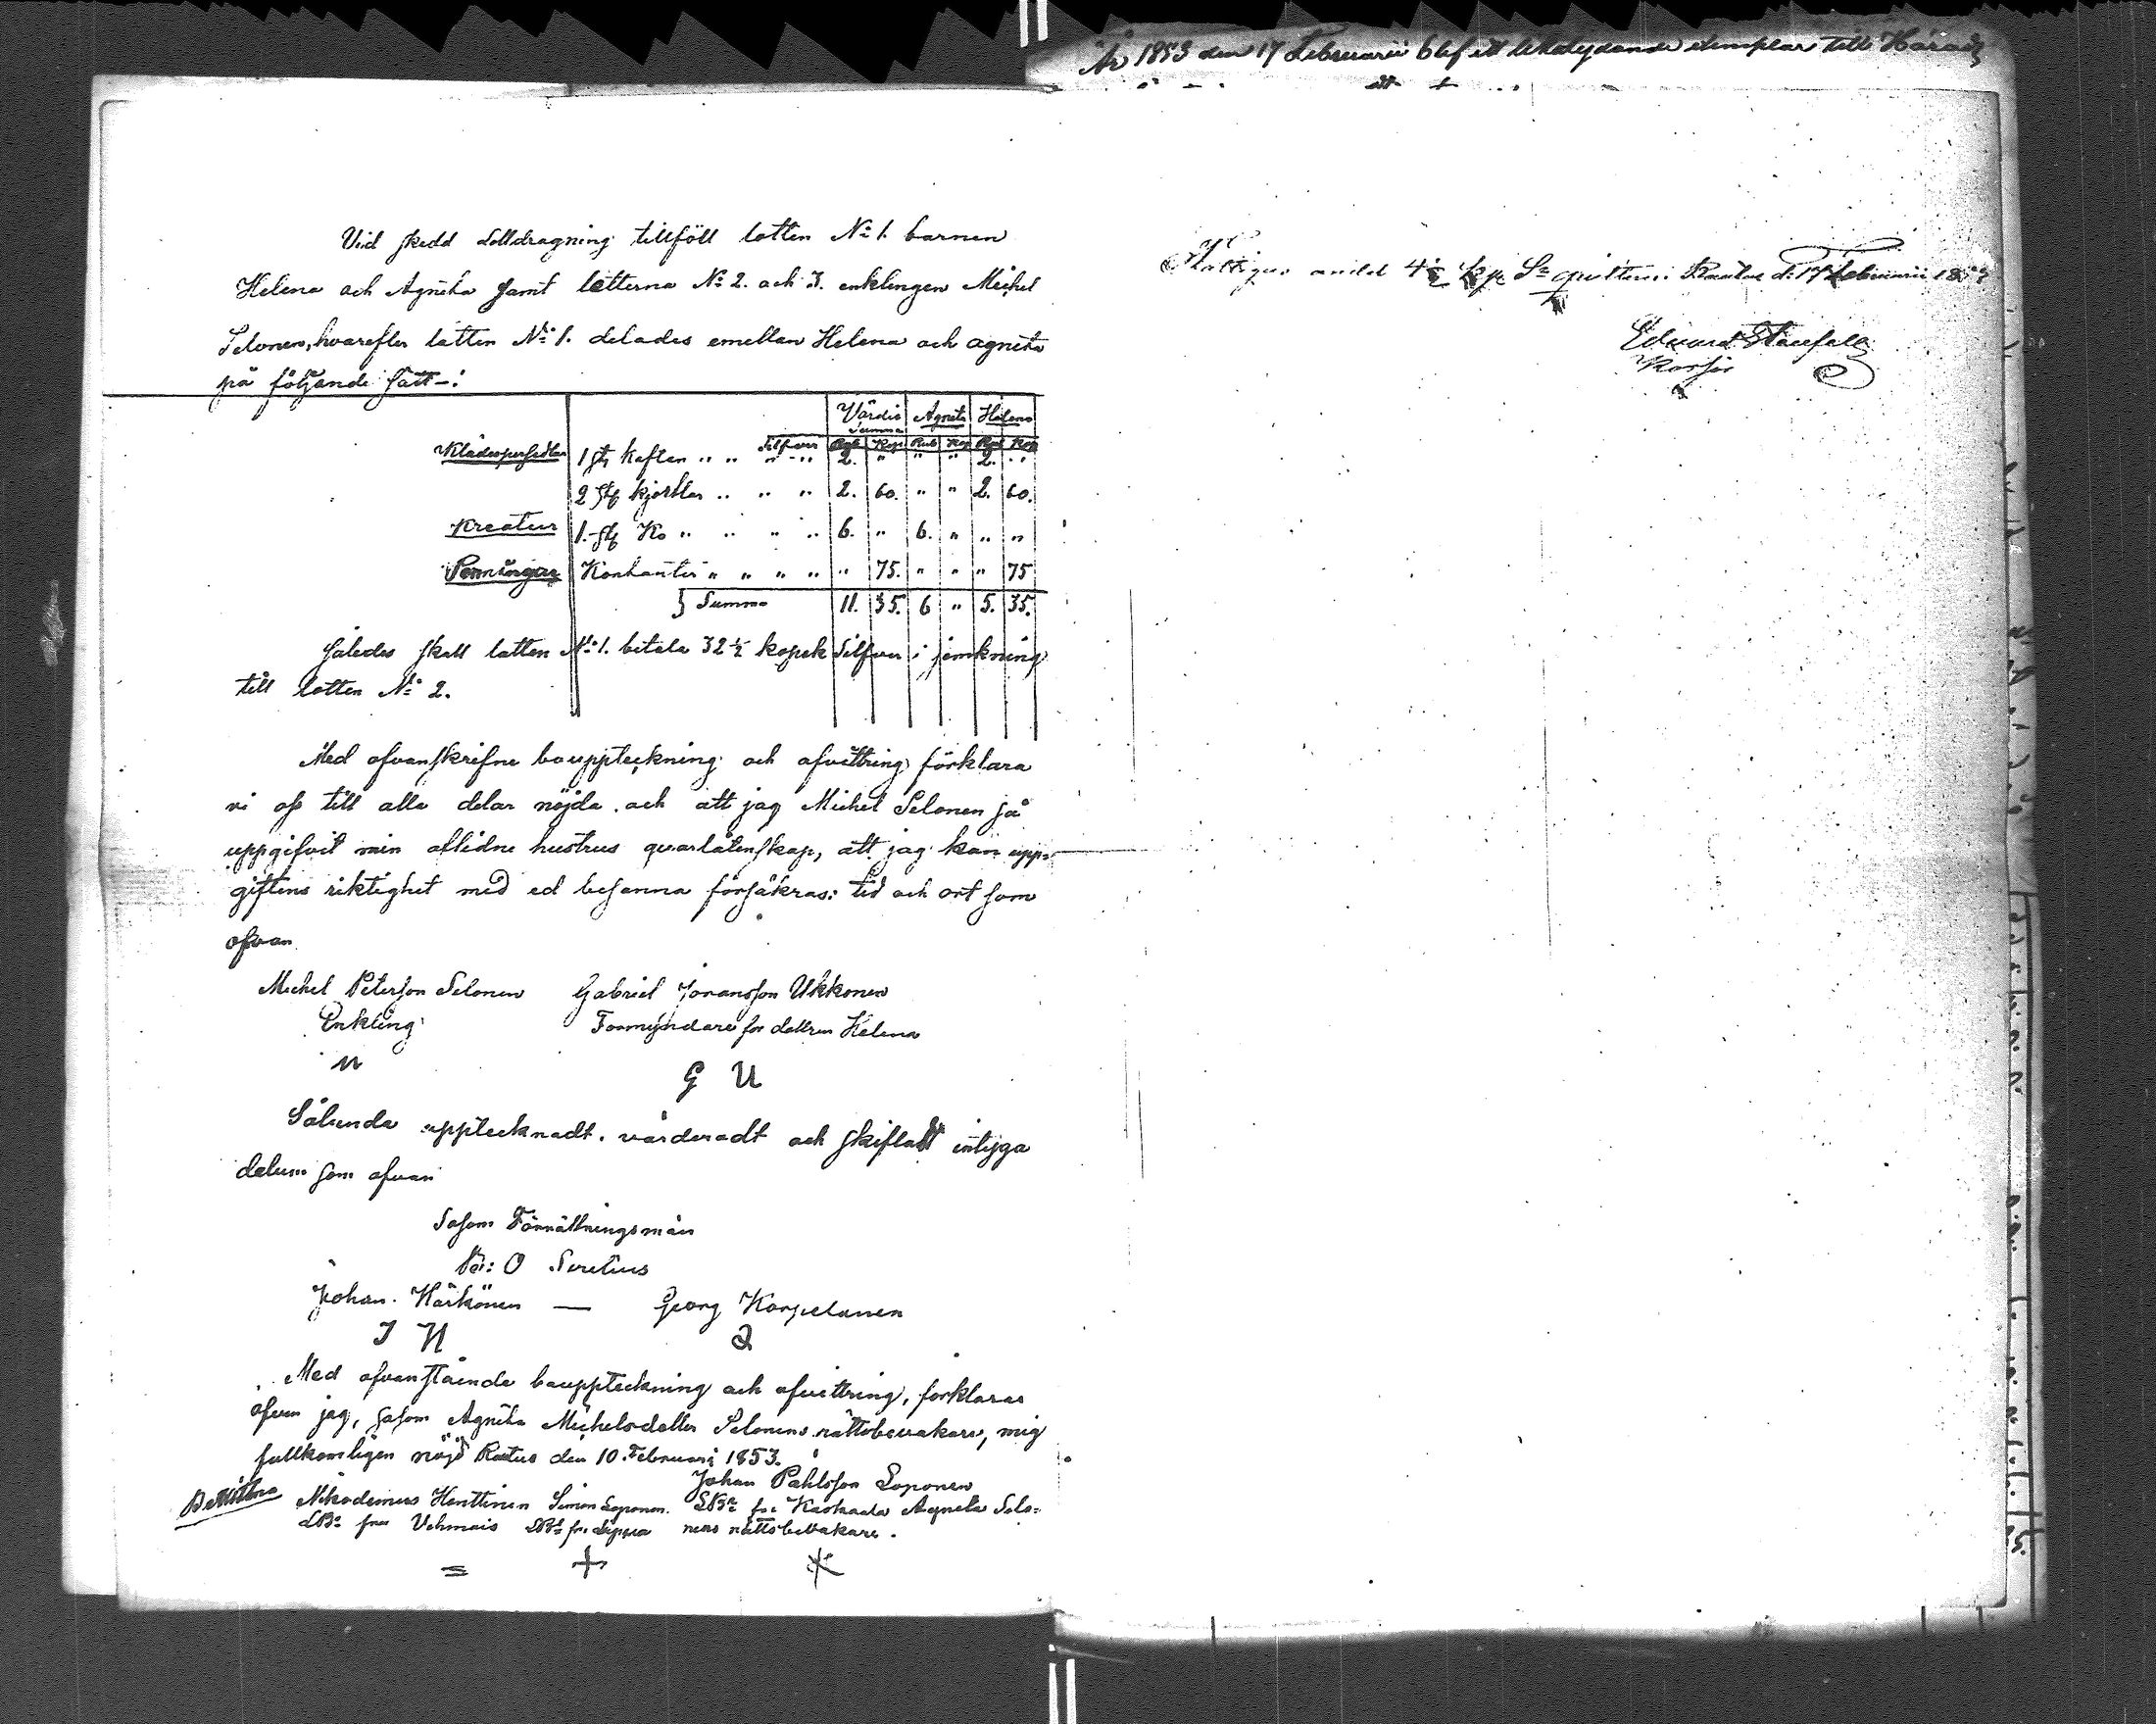 Vid skedd Lottdragning tillföll lotten No 1. barnen
Helena och Agneta samt lotterna No 2. och 3. enklingen Michel
Selonen, hvarefter lotten No 1. delades emellan Helena och Agneta
på följande sätt -:
Värdie Agneta Helena
Summa
Silfver Rub Kop Rub Kop Rub Kop
Klädespersedlar 1 st kaften " " " " 2. " " " 2. "
2 st kjortlar " " " 2. 60. " " 2. 60.
Kreatur 1. st Ko " " " " 6. " 6. " " "
Penningar Kontanter " " " " " 75. " " " 75
Summa 11. 35. 6 " 5. 35.
således skall lotten No 1. betala 32 1/2 kopek Silfver i jemkning
till lotten No 2.
Med ofvanskrifne bouppteckning och afvittring förklara
vi oss till alla delar nöjda. och att jag Michel Selonen så
uppgifvit min aflidne hustrus qvarlåtenskap, att jag kan upp=
giftens riktighet med ed besanna försäkras: tid och ort som
ofvan
Michel Peterson Selonen Gabriel Johansson Ukkonen
Enkling Formyndare for dottren Helena
M
G U
Sålunda upptecknadt. värderadt och skiftadt intyga
datum som ofvan
Såsom Förrättningsmän
O Sirelius
Johan Härkönen — Georg Korpelanen
I H
Med ofvanstående bouppteckning och afvittring, förklarar
äfven jag, såsom Agneta Michelsdotter Selonens rättsbevakare, mig
fullkomligen nöjd Rautus den 10. Februari 1853.
Johan Pahlsson Loponen
Bevittna Nikodemus Hanttinen Simon Loponen. LBn fr: Kaskaala Agneta Selo=
LBn fr: Vehmais LBn fr: Leppea nens rättsbevakare.
= + *
År 1853 den 17 Februarii blef ett likalydande exemplar till Härads
att
Fattigas andel 4 1/2 kop Sr qvitteras Rautus d: 17 Februarii 1853
Eduard